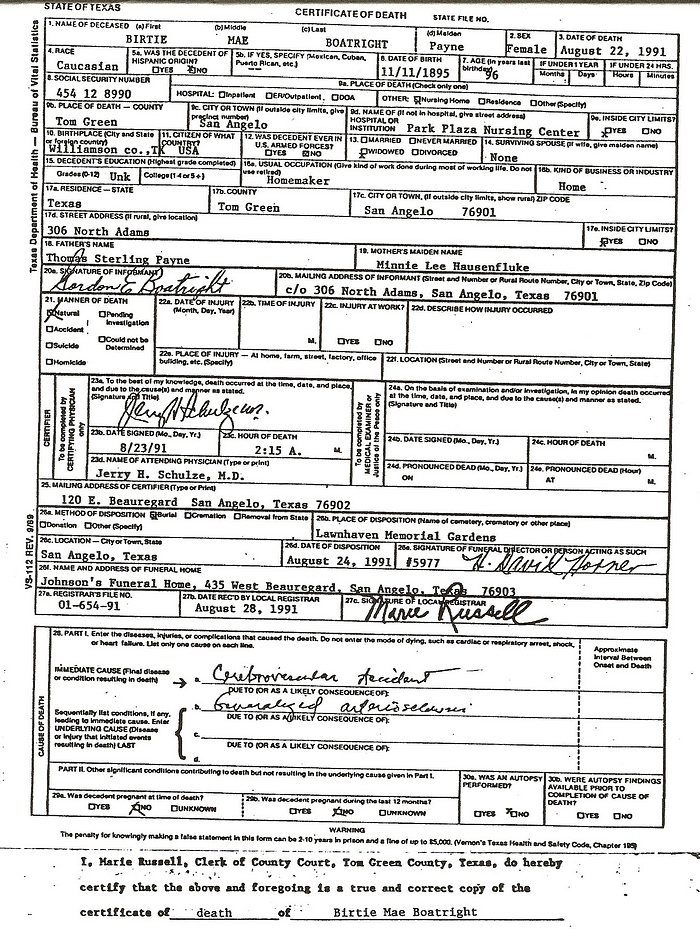 STATE OF TEXAS CERTIFICATE OF DEATH STATE FILE NO.
1. NAME OF DECEASED (a) First (b) Middle (c) Last (d) Maiden 2. SEX 3. DATE OF DEATH
BIRTIE MAE BOATRIGHT Payne Female August 22, 1991
4. RACE 5a. WAS THE DECEDENT OF HISPANIC ORIGIN? 5b. IF YES, SPECIFY (Mexican, Cuban, Puerto Rican, etc.) 6. DATE OF BIRTH 7. AGE (In years last birthday) IF UNDER 1 YEAR IF UNDER 24 HRS.
Caucasian YES NO 11/11/1895 96 Months Days Hours Minutes
8. SOCIAL SECURITY NUMBER 9a. PLACE OF DEATH (Check only one)
454 12 8990 HOSPITAL: Inpatient ER/Outpatient DOA OTHER: Nursing Home Residence Other (Specify)
9b. PLACE OF DEATH — COUNTY 9c. CITY OR TOWN (If outside city limits, give precinct number) 9d. NAME OF (If not in hospital, give street address) HOSPITAL OR INSTITUTION 9e. INSIDE CITY LIMITS?
Tom Green San Angelo Park Plaza Nursing Center YES NO
10. BIRTHPLACE (City and State or foreign country) 11. CITIZEN OF WHAT COUNTRY? 12. WAS DECEDENT EVER IN U.S. ARMED FORCES? 13. MARRIED NEVER MARRIED 14. SURVIVING SPOUSE (If wife, give maiden name)
Williamson co.,TX USA YES NO WIDOWED DIVORCED None
15. DECEDENT'S EDUCATION (Highest grade completed) 16a. USUAL OCCUPATION (Give kind of work done during most of working life. Do not use retired) 16b. KIND OF BUSINESS OR INDUSTRY
Grades (0-12) Unk College (1-4 or 5+) Homemaker Home
17a. RESIDENCE — STATE 17b. COUNTY 17c. CITY OR TOWN, (If outside city limits, show rural) ZIP CODE
Texas Tom Green San Angelo 76901
17d. STREET ADDRESS (If rural, give location) 17e. INSIDE CITY LIMITS?
306 North Adams YES NO
18. FATHER'S NAME 19. MOTHER'S MAIDEN NAME
Thomas Sterling Payne Minnie Lee Hausenfluke
20a. SIGNATURE OF INFORMANT 20b. MAILING ADDRESS OF INFORMANT (Street and Number or Rural Route Number, City or Town, State, Zip Code)
Gordon E Boatright c/o 306 North Adams, San Angelo, Texas 76901
21. MANNER OF DEATH 22a. DATE OF INJURY (Month, Day, Year) 22b. TIME OF INJURY 22c. INJURY AT WORK? 22d. DESCRIBE HOW INJURY OCCURRED
Natural Pending Investigation
Accident M. YES NO
Suicide Could not be Determined
Homicide 22e. PLACE OF INJURY — At home, farm, street, factory, office building, etc. (Specify) 22f. LOCATION (Street and Number or Rural Route Number, City or Town, State)
CERTIFIER
To be completed by CERTIFYING PHYSICIAN only
23a. To the best of my knowledge, death occurred at the time, date, and place, and due to the cause(s) and manner as stated.
(Signature and Title)
Jerry H Schulze M.D.
23b. DATE SIGNED (Mo., Day, Yr.) 23c. HOUR OF DEATH
8/23/91 2:15 A. M.
23d. NAME OF ATTENDING PHYSICIAN (Type or print)
Jerry H. Schulze, M.D.
To be completed by MEDICAL EXAMINER or Justice of the Peace only
24a. On the basis of examination and/or investigation, in my opinion death occurred at the time, date, and place, and due to the cause(s) and manner as stated.
(Signature and Title)
24b. DATE SIGNED (Mo., Day, Yr.) 24c. HOUR OF DEATH
M.
24d. PRONOUNCED DEAD (Mo., Day, Yr.) 24e. PRONOUNCED DEAD (Hour)
ON AT M.
25. MAILING ADDRESS OF CERTIFIER (Type or Print)
120 E. Beauregard San Angelo, Texas 76902
26a. METHOD OF DISPOSITION Burial Cremation Removal from State 26b. PLACE OF DISPOSITION (Name of cemetery, crematory or other place)
Donation Other (Specify) Lawnhaven Memorial Gardens
26c. LOCATION — City or Town, State 26d. DATE OF DISPOSITION 26e. SIGNATURE OF FUNERAL DIRECTOR OR PERSON ACTING AS SUCH
San Angelo, Texas August 24, 1991 #5977 H. David Horner
26f. NAME AND ADDRESS OF FUNERAL HOME
Johnson's Funeral Home, 435 West Beauregard, San Angelo, Texas 76903
27a. REGISTRAR'S FILE NO. 27b. DATE REC'D BY LOCAL REGISTRAR 27c. SIGNATURE OF LOCAL REGISTRAR
01-654-91 August 28, 1991 Marie Russell
Texas Department of Health — Bureau of Vital Statistics
VS-112 REV. 9/89
CAUSE OF DEATH
28. PART I. Enter the diseases, injuries, or complications that caused the death. Do not enter the mode of dying, such as cardiac or respiratory arrest, shock, or heart failure. List only one cause on each line.
Approximate Interval Between Onset and Death
IMMEDIATE CAUSE (Final disease or condition resulting in death) → a. Cerebrovascular Accident
DUE TO (OR AS A LIKELY CONSEQUENCE OF):
Sequentially list conditions, if any, leading to immediate cause. Enter UNDERLYING CAUSE (Disease or injury that initiated events resulting in death) LAST
b. Generalized arteriosclerosis
DUE TO (OR AS A LIKELY CONSEQUENCE OF):
c.
DUE TO (OR AS A LIKELY CONSEQUENCE OF):
d.
PART II. Other significant conditions contributing to death but not resulting in the underlying cause given in Part I.
30a. WAS AN AUTOPSY PERFORMED? 30b. WERE AUTOPSY FINDINGS AVAILABLE PRIOR TO COMPLETION OF CAUSE OF DEATH?
YES NO YES NO
29a. Was decedent pregnant at time of death? 29b. Was decedent pregnant during the last 12 months?
YES NO UNKNOWN YES NO UNKNOWN
WARNING
The penalty for knowingly making a false statement in this form can be 2-10 years in prison and a fine of up to $5,000. (Vernon's Texas Health and Safety Code, Chapter 195)
I, Marie Russell, Clerk of County Court, Tom Green County, Texas, do hereby
certify that the above and foregoing is a true and correct copy of the
certificate of death of Birtie Mae Boatright